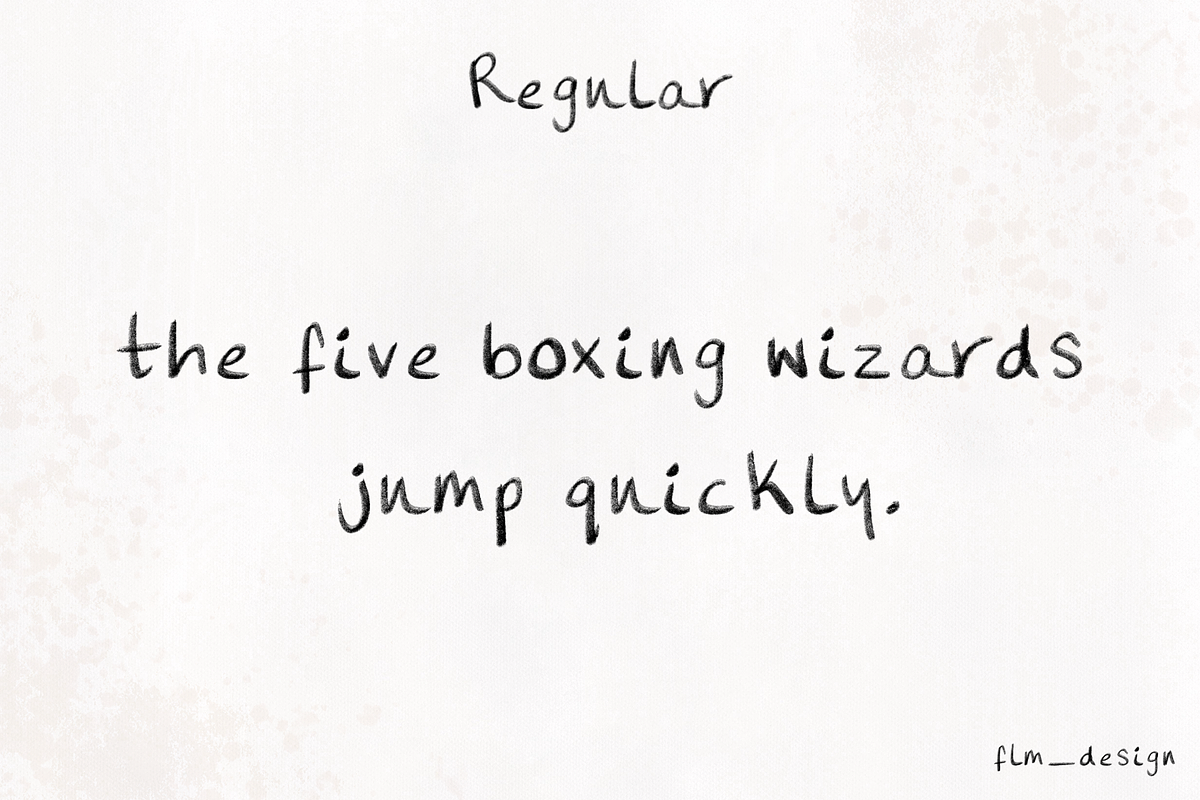 Regular
the five boxing wizards
jump quickly.
flm_design